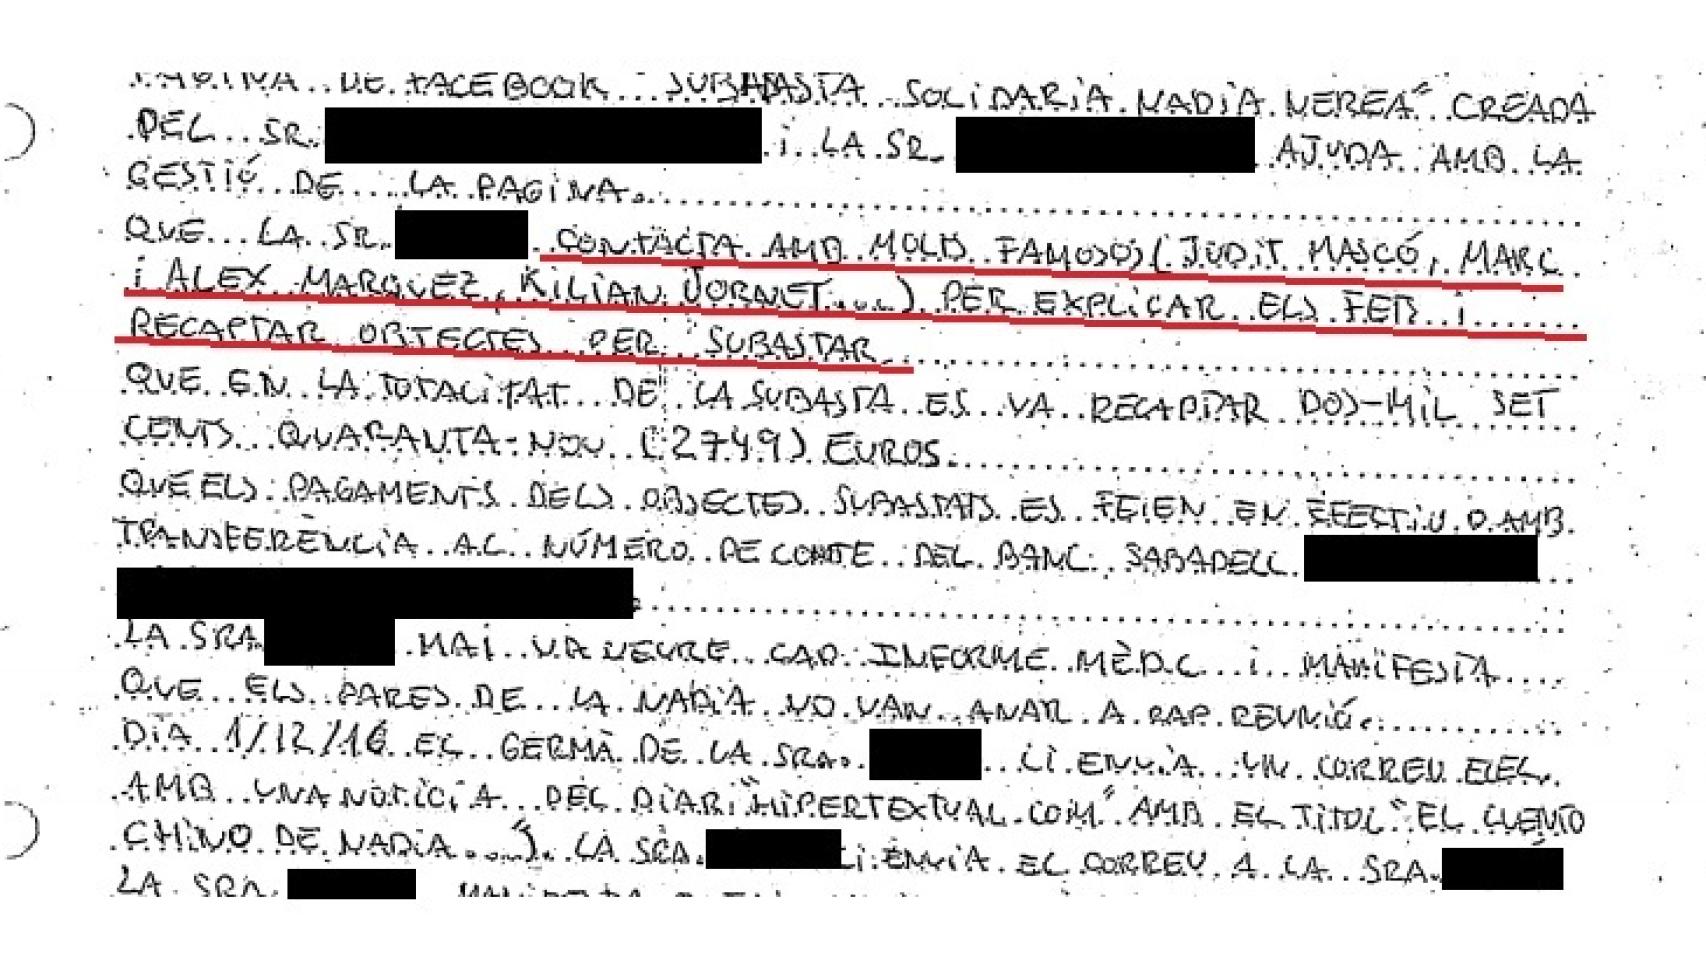 PAGINA DE FACEBOOK SUBASTA SOLIDARIA NADIA NEREA" CREADA
DEL SR. i LA SR. AJUDA AMB LA
GESTIÓ DE LA PAGINA.
QUE LA SR. CONTACTA AMB MOLTS FAMOSOS (JUDIT MASCÓ, MARC
i ALEX MARQUEZ, KILIAN JORNET...) PER EXPLICAR ELS FETS i
RECAPTAR OBJECTES PER SUBASTAR.
QUE EN LA TOTALITAT DE LA SUBASTA ES VA RECAPTAR DOS-MIL SET
CENTS QUARANTA-NOU (2749) EUROS.
QUE ELS PAGAMENTS DELS OBJECTES SUBASTATS ES FEIEN EN EFECTIU O AMB
TRANSFERÈNCIA AL NÚMERO DE COMTE DEL BANC SABADELL
LA SRA. MAI VA VEURE CAP INFORME MÈDIC i MANIFESTA
QUE ELS PARES DE LA NADIA NO VAN ANAR A CAP REUNIÓ.
DIA 1/12/16 EL GERMÀ DE LA SRA. LI ENVIA UN CORREU ELEC.
AMB UNA NOTÍCIA DEL DIARI "HIPERTEXTUAL.COM" AMB EL TITOL "EL CUENTO
CHINO DE NADIA...". LA SRA. LI ENVIA EL CORREU A LA SRA.
LA SRA.